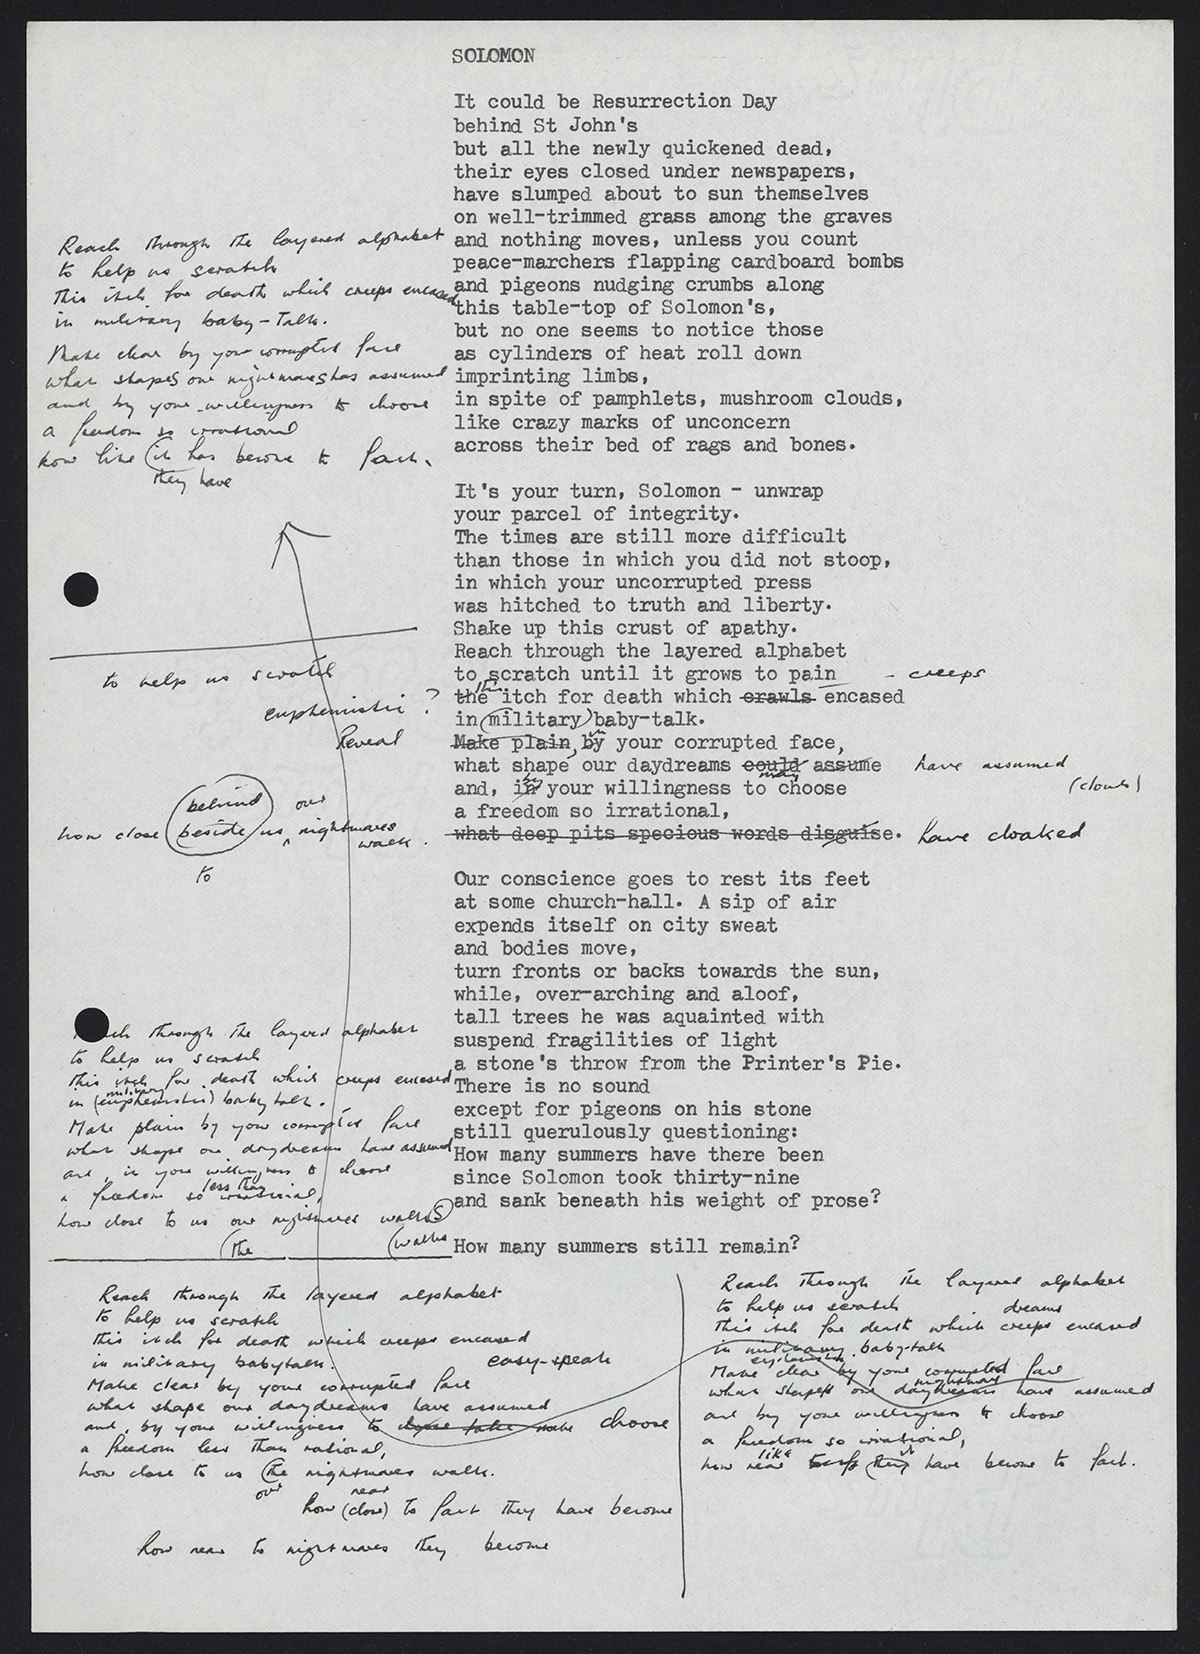 SOLOMON
It could be Resurrection Day
behind St John's
but all the newly quickened dead,
their eyes closed under newspapers,
have slumped about to sun themselves
on well-trimmed grass among the graves
and nothing moves, unless you count
peace-marchers flapping cardboard bombs
and pigeons nudging crumbs along
this table-top of Solomon's,
but no one seems to notice those
as cylinders of heat roll down
imprinting limbs,
in spite of pamphlets, mushroom clouds,
like crazy marks of unconcern
across their bed of rags and bones.
It's your turn, Solomon - unwrap
your parcel of integrity.
The times are still more difficult
than those in which you did not stoop,
in which your uncorrupted press
was hitched to truth and liberty.
Shake up this crust of apathy.
Reach through the layered alphabet
to scratch until it grows to pain - creeps
the this itch for death which crawls encased
in (military) baby-talk.
Make plain, by your corrupted face,
what shape our daydreams could assume have assumed
may (clouds)
and, in by your willingness to choose
a freedom so irrational,
what deep pits specious words disguise. have cloaked
Our conscience goes to rest its feet
at some church-hall. A sip of air
expends itself on city sweat
and bodies move,
turn fronts or backs towards the sun,
while, over-arching and aloof,
tall trees he was aquainted with
suspend fragilities of light
a stone's throw from the Printer's Pie.
There is no sound
except for pigeons on his stone
still querulously questioning:
How many summers have there been
since Solomon took thirty-nine
and sank beneath his weight of prose?
How many summers still remain?
Reach through the layered alphabet
to help us scratch
this itch for death which creeps encased
in military baby-talk.
Make clear by your corrupted face
what shapes our nightmares has assumed
and by your willingness to choose
a freedom so irrational
how like (it has become to fact.
they have
to help us scratch
euphemistic ?
Reveal
(behind) our
how close (beside) us nightmares
walk.
to
through the layered alphabet
to help us scratch
this itch for death which creeps encased
military
in (euphemistic) baby talk.
Make plain by your corrupted face
what shape our daydreams have assumed
and, in your willingness to choose
less than
a freedom so irrational,
how close to us our nightmares walk (s)
(the (walks
Reach through the layered alphabet
to help us scratch
this itch for death which creeps encased
in military babytalk. easy-speak
Make clear by your corrupted face
what shape our daydreams have assumed
and, by your willingness to take make choose
a freedom less than rational,
how close to us (the nightmares walk.
our near
how (close) to fact they have become
how near to nightmares they become
Reach through the layered alphabet
to help us scratch dreams
this itch for death which creeps encased
in military baby-talk
euphemistic
Make clear by your corrupted face
nightmares
what shapes our daydreams have assumed
and by your willingness to choose
a freedom so irrational,
like it
how near (they have become to fact.